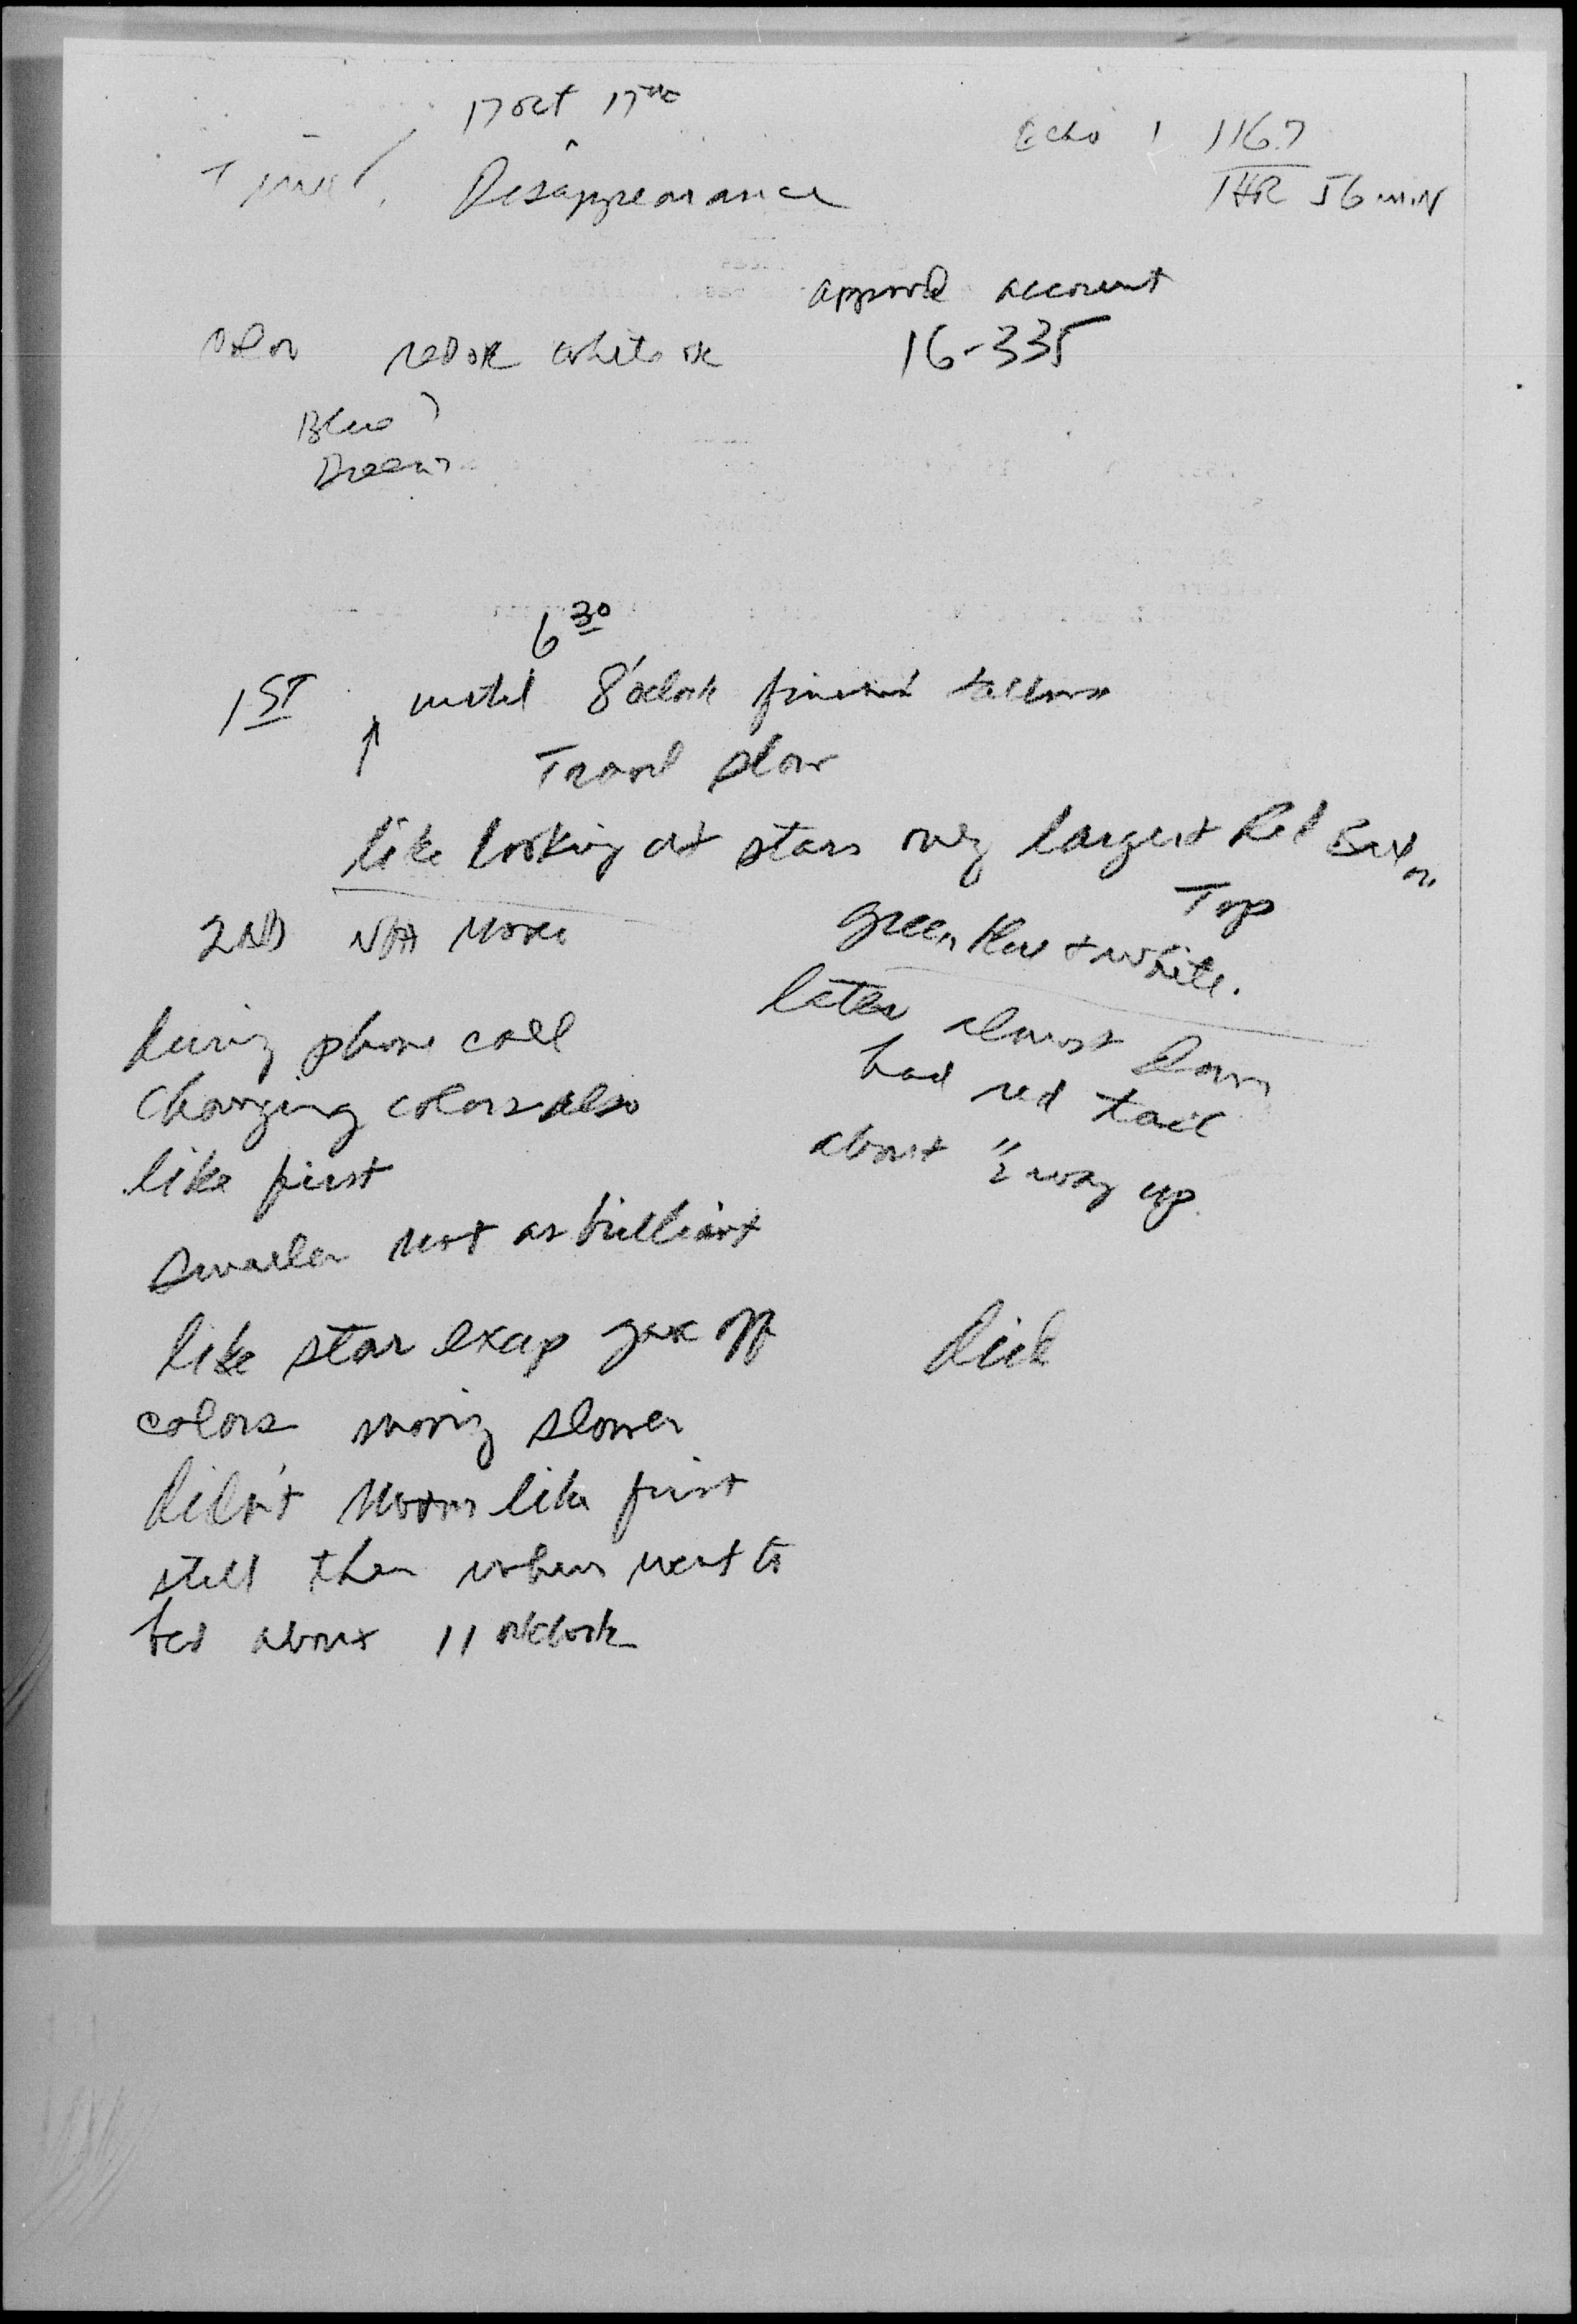 17 Oct 17
Echo 1 116.7
Time / Disappearance
1 HR 56 MIN
account
16-335
Color red or white or
Blue ?
Green
6 30
1ST until 8 o'clock
Travel slow
like looking at stars only largest Red But on
Top
green blue & white.
2ND Not
later almost down
had red tail
about 1/2 way up.
during phone call
changing colors also
like first
smaller not as brilliant
like star excep gave off
colors moving slower
didn't like first
still ther when went to
bed about 11 o'clock